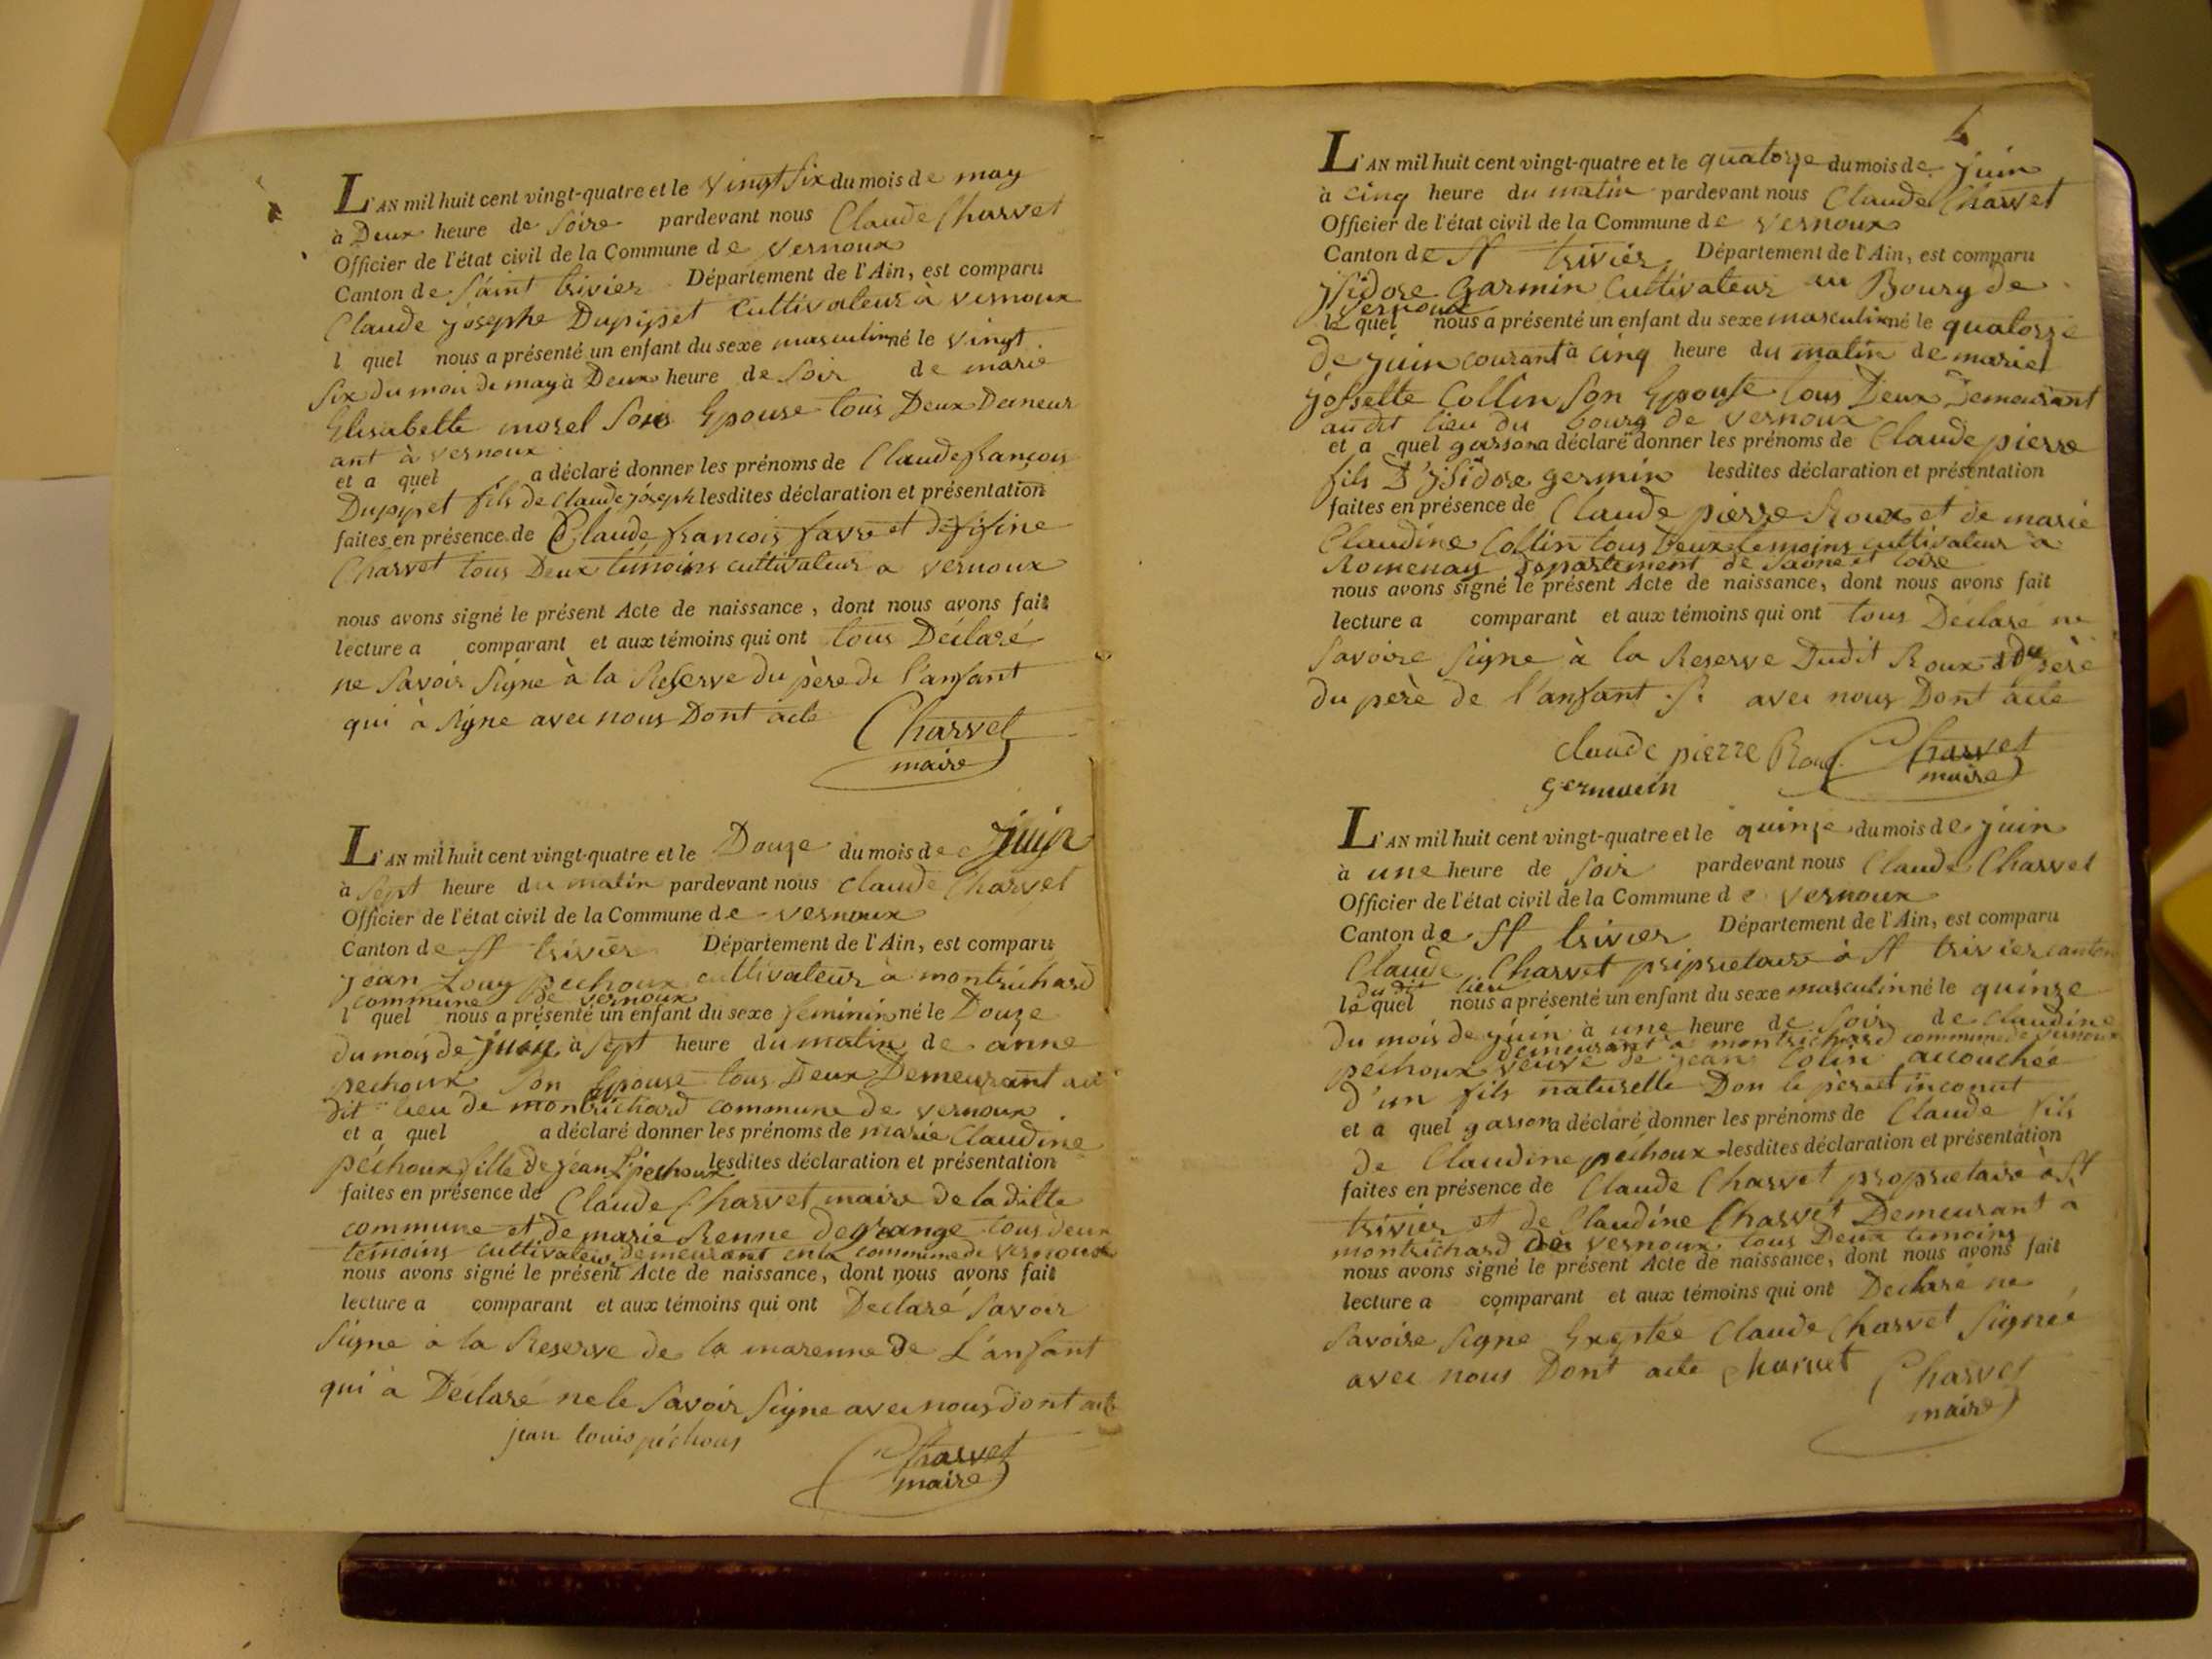 L'AN mil huit cent vingt-quatre et le vingt six du mois de may
à Deux heure de Soire pardevant nous Claude Charvet
Officier de l'état civil de la Commune de vernoux
Canton de Saint trivier Département de l'Ain, est comparu
Claude josephe Dupipet Cultivateur à vernoux
l quel nous a présenté un enfant du sexe masculin né le vingt
six du moi de may à Deux heure de Soir de marie
Elisabette morel Son Epouse tous Deux Demeur
ant à vernoux
et a quel a déclaré donner les prénoms de Claude françois
Dupipet fils de Claude joseph lesdites déclaration et présentation
faites en présence de Claude françois favre et
Charvet tous Deux temoins cultivateur a vernoux
nous avons signé le présent Acte de naissance, dont nous avons fait
lecture a comparant et aux témoins qui ont tous Déclaré
ne Savoir Signe à la Reserve du père de l'anfant
qui à Signe avec nous Dont acte Charvet
maire
L'AN mil huit cent vingt-quatre et le Douze du mois de juin
à Sept heure du matin pardevant nous claude Charvet
Officier de l'état civil de la Commune de vernoux
Canton de St trivier Département de l'Ain, est comparu
jean Louy pechoux cultivateur à montrichard
commune de vernoux
l quel nous a présenté un enfant du sexe feminin né le Douze
du mois de juin à Sept heure du matin de anne
pechoux Son Epouse tous Deux Demeurant au
dit lieu de montrichard commune de vernoux
et a quel a déclaré donner les prénoms de marie Claudine
péchoux fille de jean L. pechoux lesdites déclaration et présentation
faites en présence de Claude Charvet maire de la ditte
commune et de marie Renne degrange tous deux
temoins cultivateur demeurant en la commune de vernoux
nous avons signé le présent Acte de naissance, dont nous avons fait
lecture a comparant et aux témoins qui ont Declaré Savoir
Signe à la Reserve de la marenne de L'anfant
qui à Déclaré ne le Savoir Signe avec nous dont acte
jean louis péchoux
Charvet
maire
L'AN mil huit cent vingt-quatre et le quatorze du mois de juin
à cinq heure du matin pardevant nous Claude Charvet
Officier de l'état civil de la Commune de vernoux
Canton de St trivier Département de l'Ain, est comparu
jsidore Garmin Cultivateur au Bourg de
vernoux
le quel nous a présenté un enfant du sexe masculin né le quatorze
de juin courant à cinq heure du matin de marie
josselte Collin Son Epouse tous Deux Demeurant
au dit lieu du bourg de vernoux
et a quel garson a déclaré donner les prénoms de Claude pierre
fils D'jsidore germin lesdites déclaration et présentation
faites en présence de Claude pierre Roux et de marie
Claudine Collin tous Deux temoins cultivateur a
Romenay Departement de Saone et loire
nous avons signé le présent Acte de naissance, dont nous avons fait
lecture a comparant et aux témoins qui ont tous Déclaré ne
Savoire Signe à la Reserve Dudit Roux
du père de l'anfant avec nous Dont acte
claude pierre Roux Charvet
maire
germain
L'AN mil huit cent vingt-quatre et le quinze du mois de juin
à une heure de Soir pardevant nous Claude Charvet
Officier de l'état civil de la Commune de vernoux
Canton de St trivier Département de l'Ain, est comparu
Claude Charvet priprietaire à St trivier canton
du dit lieu
le quel nous a présenté un enfant du sexe masculin né le quinze
du mois de juin à une heure de Soir de claudine
demeurant a montrichard commune de vernoux
péchoux veuve de jean Colin accouchée
d'un fils naturelle Don le père et inconut
et a quel garson a déclaré donner les prénoms de Claude fils
de Claudine pechoux lesdites déclaration et présentation
faites en présence de Claude Charvet proprietaire à St
trivier et de Claudine Charvet Demeurant à
montrichard de vernoux tous Deux temoins
nous avons signé le présent Acte de naissance, dont nous avons fait
lecture a comparant et aux témoins qui ont Declaré ne
Savoire Signe Exeptée Claude Charvet Signée
avec nous Dont acte Charvet Charvet
maire